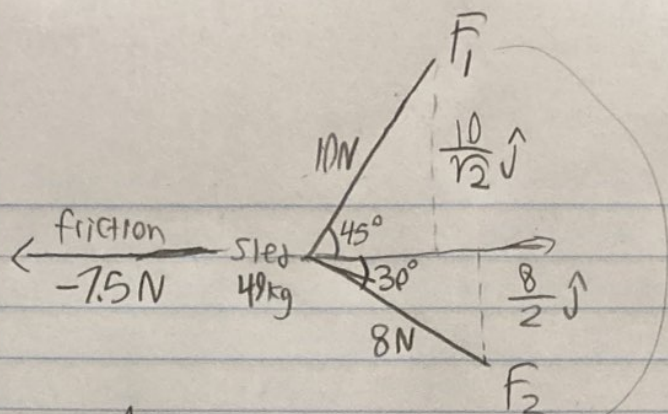 F₁
10N
10/√2 ĵ
45°
friction
-7.5N
sled
49kg
30°
8/2 ĵ
8N
F₂